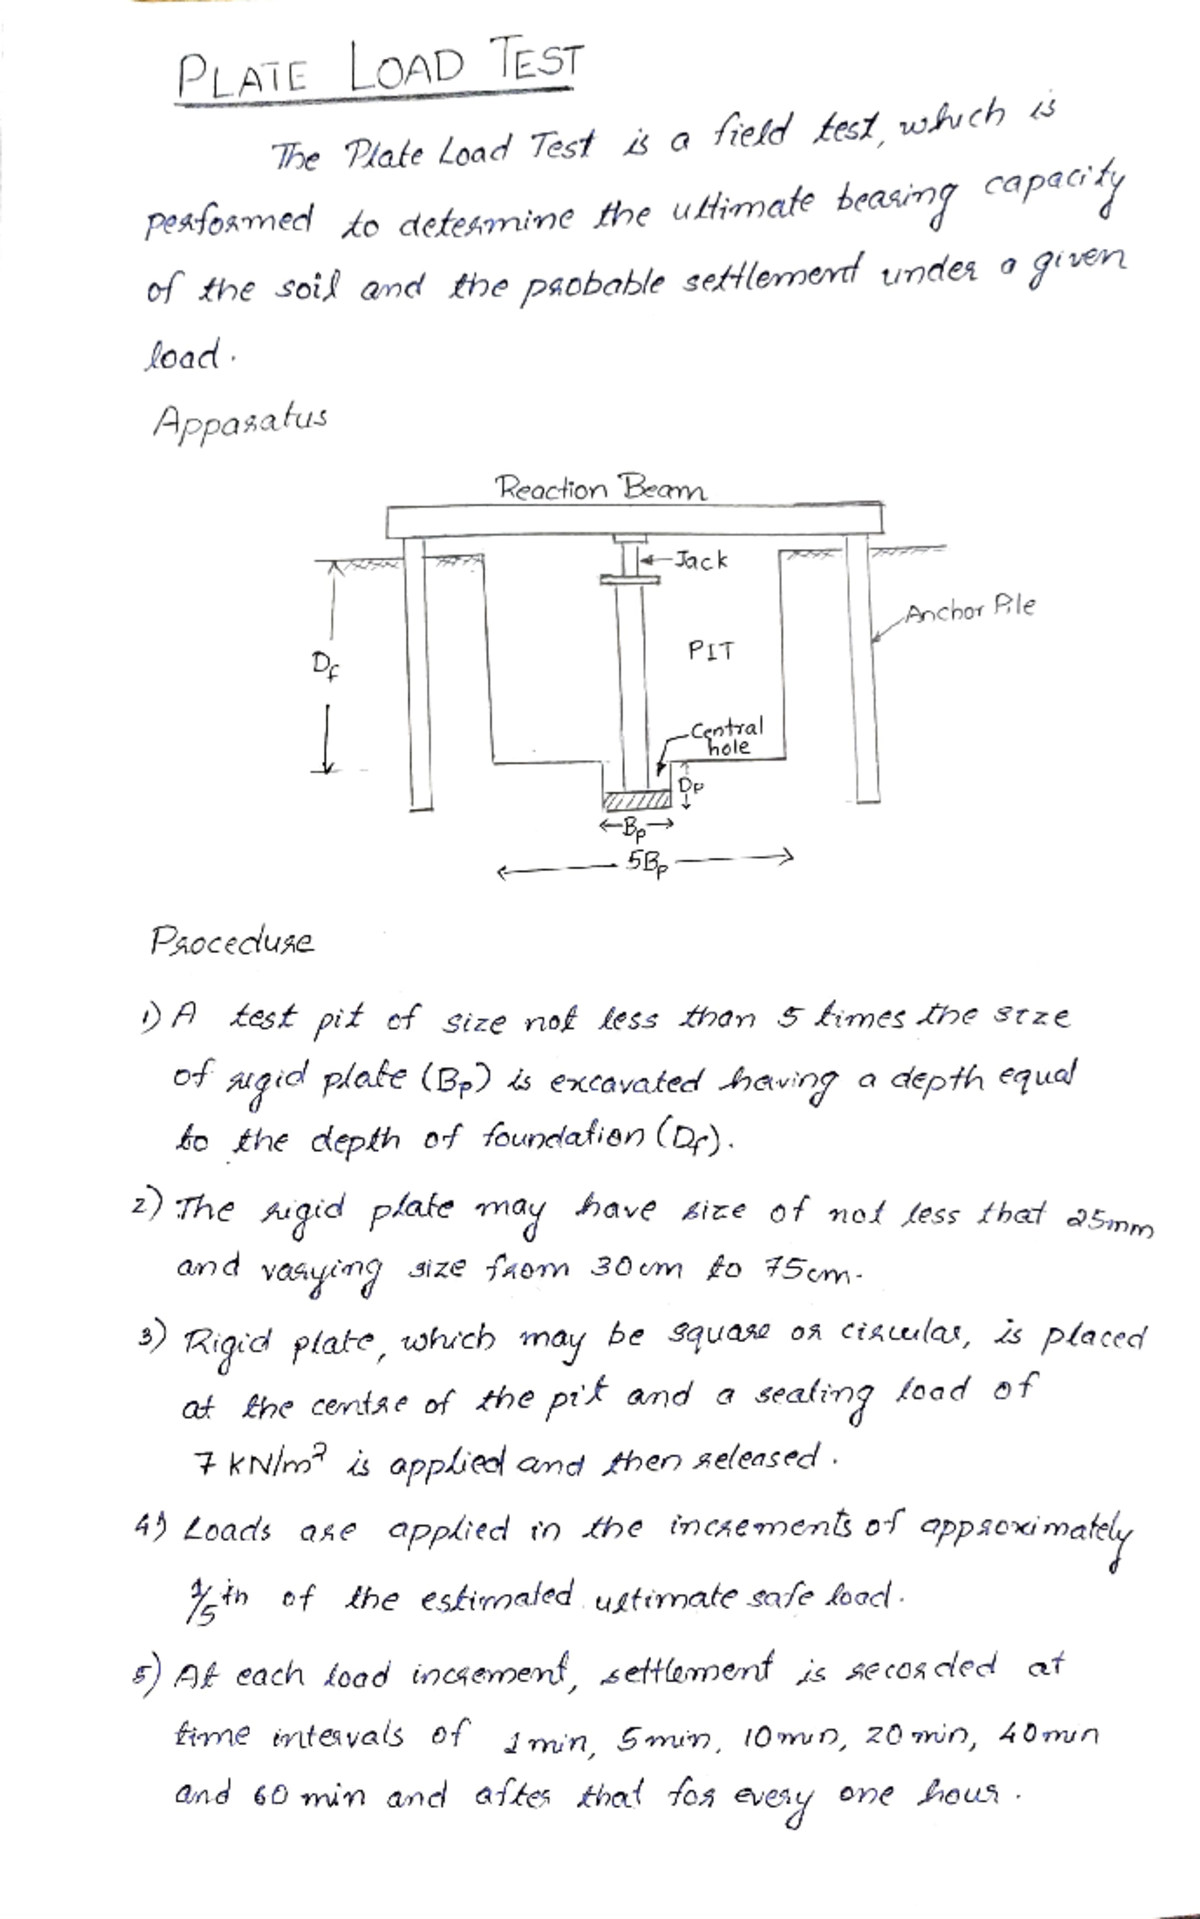 PLATE LOAD TEST
The Plate Load Test is a field test, which is
performed to determine the ultimate bearing capacity
of the soil and the probable settlement under a given
load.
Apparatus
Reaction Beam
Jack
Anchor Pile
PIT
Df
Central
hole
Dp
Bp
5Bp
Procedure
1) A test pit of size not less than 5 times the size
of rigid plate (Bp) is excavated having a depth equal
to the depth of foundation (Df).
2) The rigid plate may have size of not less that 25mm
and varying size from 30cm to 75cm.
3) Rigid plate, which may be square or circular, is placed
at the centre of the pit and a seating load of
7 kN/m² is applied and then released.
4) Loads are applied in the increments of approximately
1/5th of the estimated ultimate safe load.
5) At each load increment, settlement is recorded at
time intervals of 1 min, 5 min, 10 min, 20 min, 40 min
and 60 min and after that for every one hour.